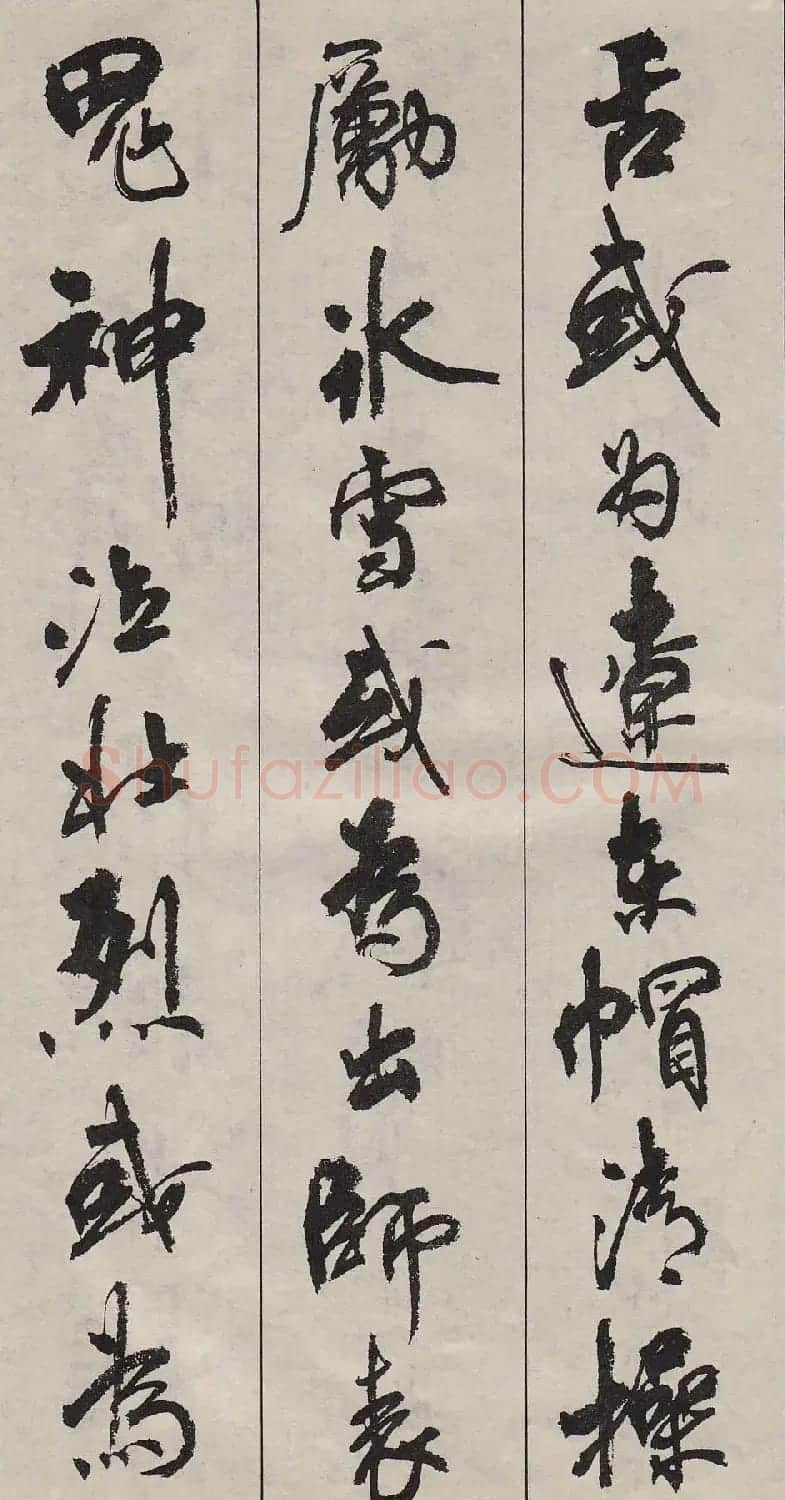 舌或为遼東帽清操
勵冰雪或為出師表
鬼神泣壮烈或為
Shufaziliao.COM